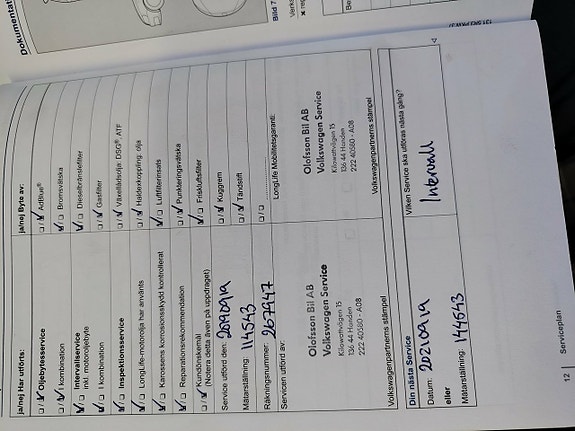 Dokumentati
Bild 7
ja/nej Har utförts:
☐/☑ Oljebytesservice
☐/☑ I kombination
☑/☐ Intervallservice
inkl. motoroljebyte
☑/☐ I kombination
☑/☐ Inspektionsservice
☑/☐ LongLife-motorolja har använts
☑/☐ Karossens korrosionsskydd kontrollerat
☑/☐ Reparationsrekommendation
☐/☑ Kundönskemål
(Notera detta även på uppdraget)
Service utförd den:
Mätarställning: 114543
Räkningsnummer: 267947
Servicen utförd av:
Olofsson Bil AB
Volkswagen Service
Kilowattvägen 15
136 44 Handen
222 40580 - A08
Volkswagenpartnerns stämpel
ja/nej Byte av:
☐/☑ AdBlue®
☑/☐ Bromsvätska
☑/☐ Dieseltränsfilter
☐/☑ Gasfilter
☐/☑ Växellådsolja: DSG® ATF
☐/☑ Haldexkoppling: olja
☑/☐ Luftfilterinsats
☐/☑ Punkteringsvätska
☑/☐ Friskluftsfilter
☐/☑ Kuggrem
☐/☑ Tändstift
☐/☐
LongLife Mobilitetsgaranti:
Olofsson Bil AB
Volkswagen Service
Kilowattvägen 15
136 44 Handen
222 40580 - A08
Volkswagenpartnerns stämpel
Din nästa Service
Datum: 20210919
eller
Mätarställning: 144543
Vilken Service ska utföras nästa gång?
Intervall
12 Serviceplan